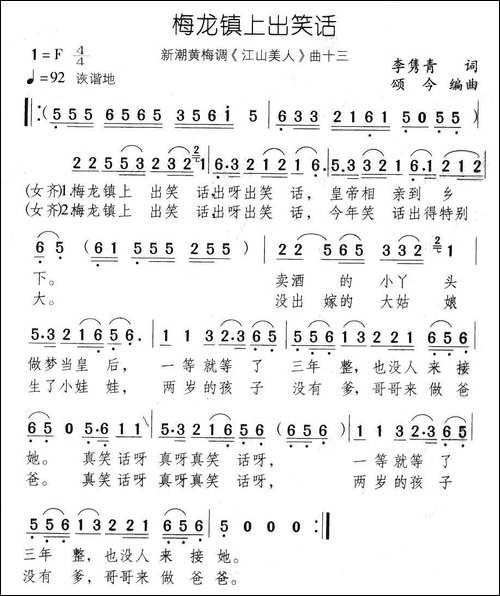 梅龙镇上出笑话
1=F 4/4 新潮黄梅调《江山美人》曲十三 李隽青 词
♩=92 诙谐地 颂今 编曲
‖:(555 6565 3561 5 | 633 2161 5055 5) |
225532321 | 6·321216 1 | 5·53321 6·1 212
(女齐)1.梅龙镇上 出笑 话,出呀出笑 话, 皇帝相 亲到 乡
(女齐)2.梅龙镇上 出笑 话,出呀出笑 话, 今年笑 话出得特别
65 (61 555 255) | 22 565 3321
下。 卖酒 的 小丫 头
大。 没出 嫁的 大姑 娘
5·321656· | 113 2·365 | 5561332216
做梦当皇 后, 一等就等 了 三年 整,也没人 来 接
生了小娃 娃, 两岁的孩 子 没有 爹,哥哥来 做 爸
65 0 5·6 11 | 5·32165 6·5 (656) | 113 2·365
她。 真笑 话呀 真呀真笑 话呀, 一等就等 了
爸。 真笑 话呀 真呀真笑 话呀, 两岁的孩 子
556 1321 2216 | 5 0 0 0 :‖
三年 整,也没人 来 接她。
没有 爹,哥哥来 做 爸爸。